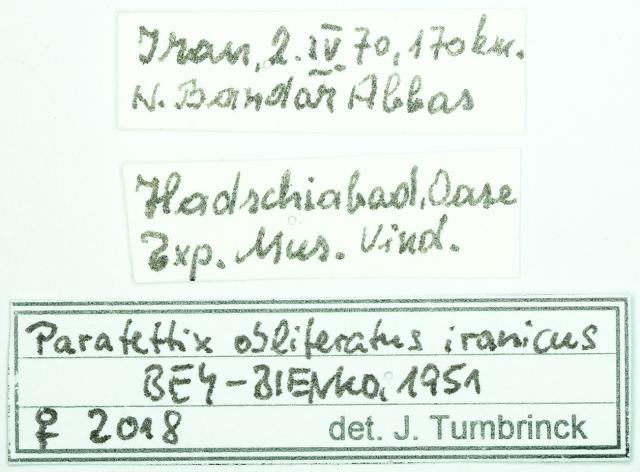 Iran, 2. IV. 70, 170 km.
N. Bandar Abbas
Hadschiabad, Oase
Exp. Mus. Vind.
Paratettix obliteratus iranicus
BEY-BIENKO, 1951
♀ 2018 det. J. Tumbrinck